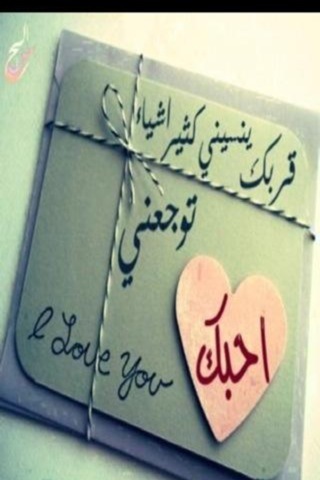 قربك ينسيني كثير اشياء
توجعني
احبك
I Love You